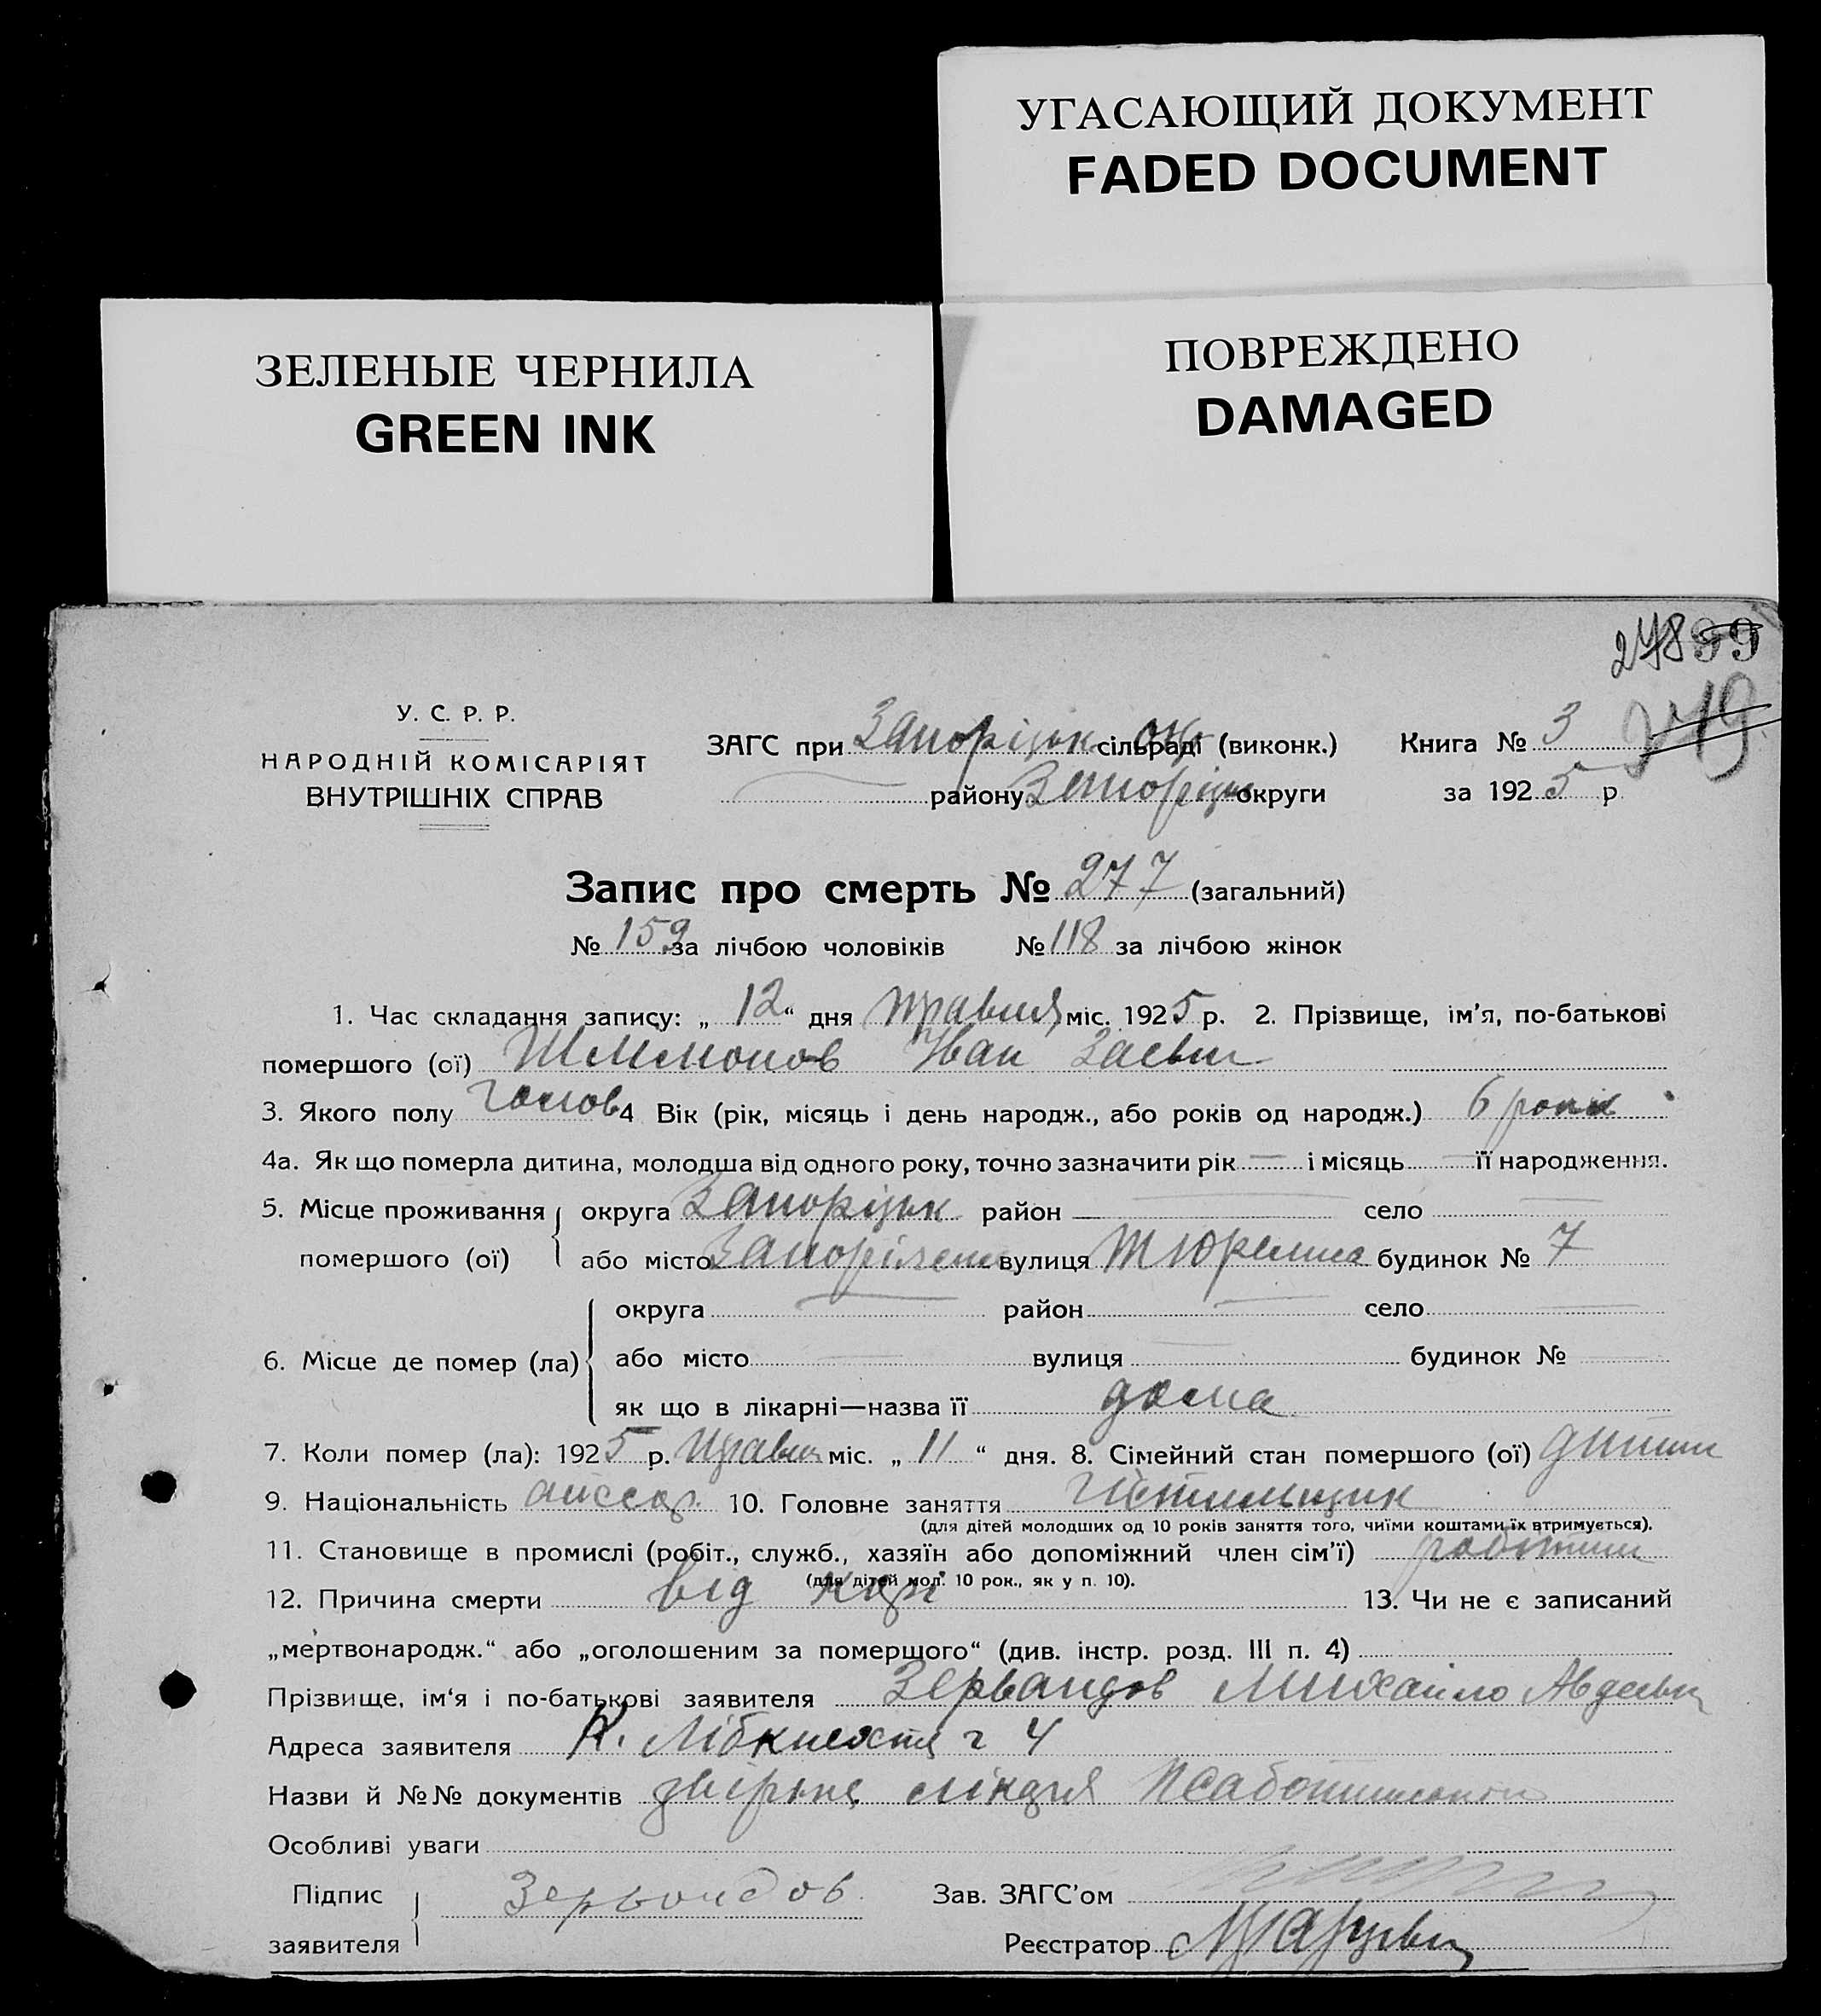 УГАСАЮЩИЙ ДОКУМЕНТ
FADED DOCUMENT
ЗЕЛЕНЫЕ ЧЕРНИЛА
GREEN INK
ПОВРЕЖДЕНО
DAMAGED
278 99
219
У. С. Р. Р.
НАРОДНІЙ КОМІСАРІЯТ
ВНУТРІШНІХ СПРАВ
ЗАГС при Запоріжк. окр сільраді (виконк.) Книга № 3
району Запоріжк округи за 1925 р.
Запис про смерть № 277 (загальний)
№ 159 за лічбою чоловіків № 118 за лічбою жінок
1. Час складання запису: „ 12 “ дня травня міс. 1925 р. 2. Прізвище, ім’я, по-батькові
помершого (ої) Іван
3. Якого полу 4 Вік (рік, місяць і день народж., або років од народж.) 6 років
4а. Як що померла дитина, молодша від одного року, точно зазначити рік — і місяць — її народження.
5. Місце проживання округа Запоріжк район — село —
помершого (ої) або місто Запоріжжя вулиця Тюремна будинок № 7
округа — район — село —
6. Місце де помер (ла) або місто — вулиця — будинок №
як що в лікарні—назва її дома
7. Коли помер (ла): 1925 р. травня міс. „ 11 “ дня. 8. Сімейний стан помершого (ої) дитина
9. Національність айссор 10. Головне заняття чистильщик
(для дітей молодших од 10 років заняття того, чиїми коштами їх втримується).
11. Становище в промислі (робіт., служб., хазяїн або допоміжний член сім’ї)
(для дітей мол. 10 рок., як у п. 10).
12. Причина смерти від кору 13. Чи не є записаний
„мертвонародж.“ або „оголошеним за померщого“ (див. інстр. розд. III п. 4)
Прізвище, ім‘я і по-батькові заявителя Зервандов Михайло Авдеевич
Адреса заявителя К. Лібкнехта 4
Назви й №№ документів
Особливі уваги
Підпис Зервондов Зав. ЗАГС’ом
заявителя Реєстратор